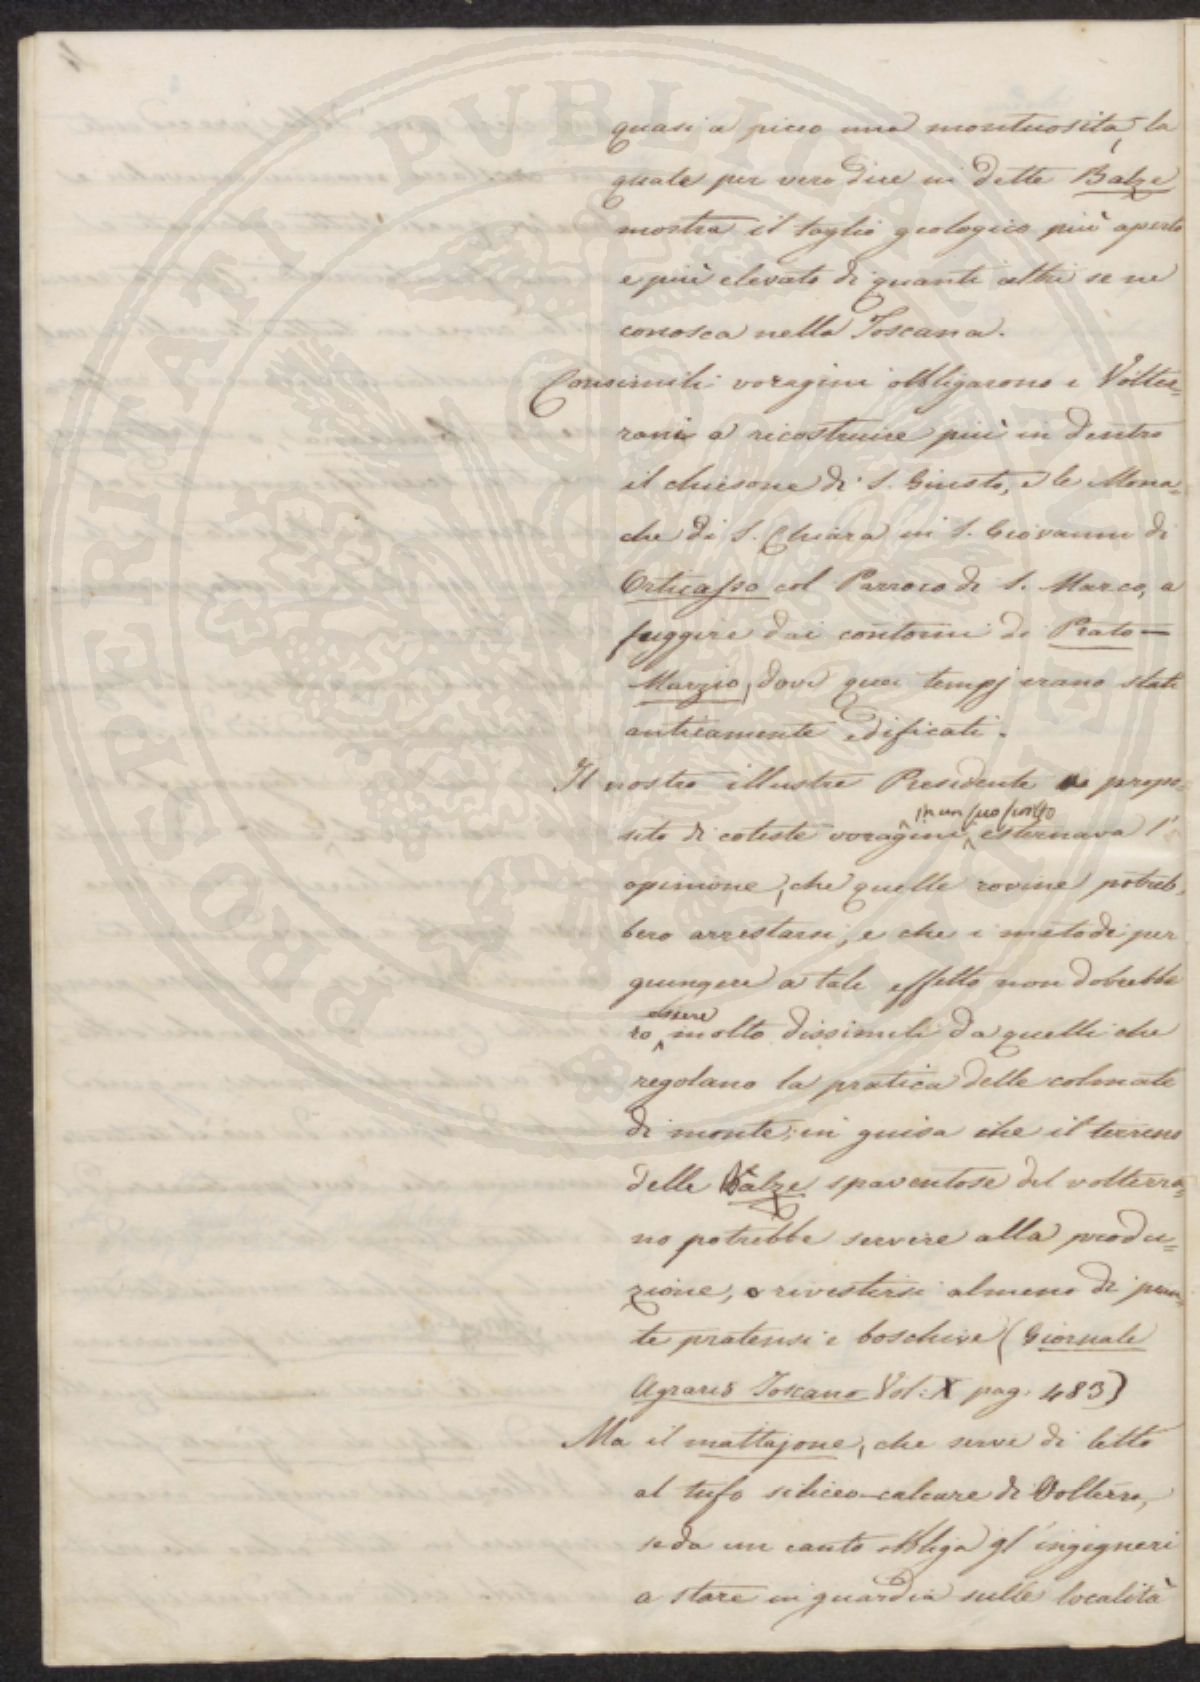 quasi a picco una montuosità, la
quale per vero dire in dette Balze
mostra il taglio geologico più aperto
e più elevato di quanti altri se ne
conosca nella Toscana.
Consimili voragini obbligarono i Volter=
rani a ricostruire più in dentro
il chiesone di S. Giusto, e le Mona=
che di S. Chiara in S. Giovanni di
Orticasso col Parroco di S. Marco, a
fuggire dai contorni di Prato=
Marzio, dove quei tempj erano stati
anticamente edificati.
Il nostro illustre Presidente a propo=
in un suo scritto
sito di coteste voragini esternava l'
opinione, che quelle rovine potreb=
bero arrestarsi, e che i metodi per
giungere a tale effetto non dovrebbe
essere
ro molto dissimili da quelli che
regolano la pratica delle colmate
di monte; in guisa che il terreno
delle Balze spaventose del volterra=
no potrebbe servire alla produ=
zione, o rivestirsi almeno di pian=
te pratensi e boschive (Giornale
Agrario Toscano Vol: X pag. 483)
Ma il mattajone, che serve di letto
al tufo siliceo-calcare di Volterra,
se da un canto obbliga gl'ingegneri
a stare in guardia sulle località
PROSPERITATI PUBLICAE